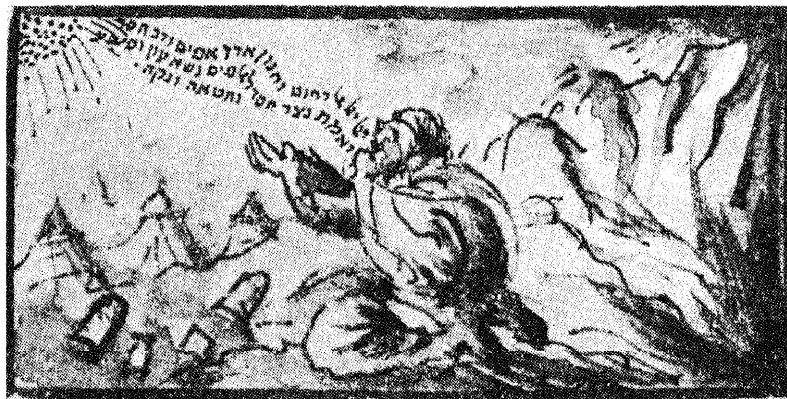 אל רחום וחנון ארך אפים ורב חסד
ואמת נצר חסד לאלפים נשא עון
וחטאה ונקה